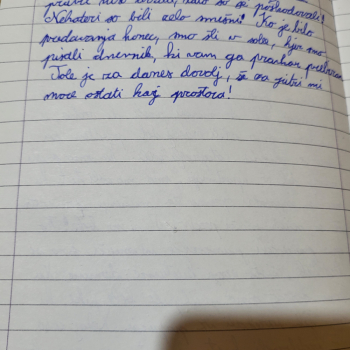 so se posladovali!
Nekateri so bili zelo smešni! Ko je bilo
predavanja konec, smo šli v sobe, kjer smo
pisali dnevnik, ki vam ga pravkar prebiram.
Tole je za danes dovolj, še za jutri mi
more ostati kaj prostora!